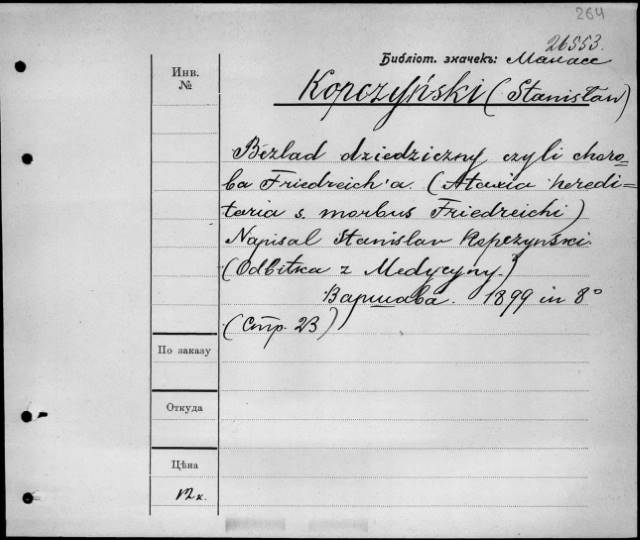 264
26553.
Библіот. значекъ: Манасс
Инв.
№
Kopczyński (Stanisław)
Bezlad dziedziczny czyli choro-
ba Friedreich'a. (Ataxia heredi-
taria s. morbus Friedreichi)
Napisal Stanislav Kopczyński
(Odbitka z Medycyny.)
Варшава. 1899 in 8°
(Стр. 23)
По заказу
Откуда
Цѣна
12 к.